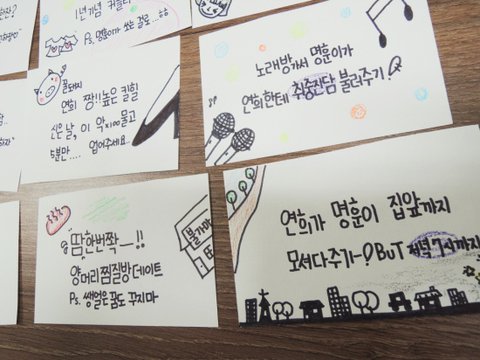 1년기념 커플티
Ps. 명훈이가 쏘는 걸로...ㅎㅎ
꿀돼지
연희 짱!! 높은 킬힐
신은 날, 이 악x100 물고
5분만.... 업어주세요
노래방가서 명훈이가
연희한테 취중진담 불러주기
땀한번쫙ㅡ!!
양머리찜질방데이트
Ps. 쌩얼은 꿈도 꾸지마
불가마
연희가 명훈이 집앞까지
모셔다주기-? BUT 저녁 7시까지